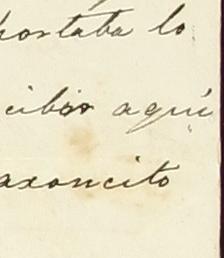 portaba lo
cibir aquí
axoncito